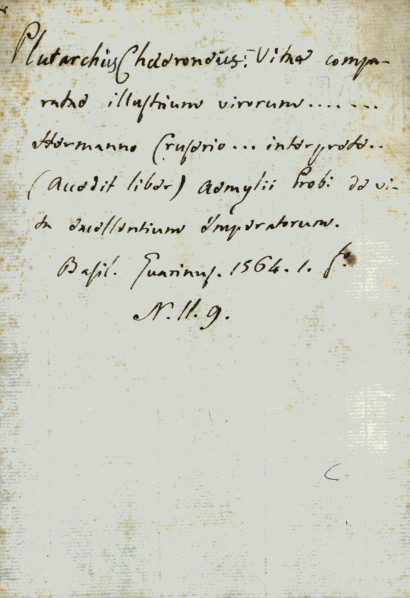 Plutarchus Chaeroneus: Vitae compa-
ratae illustrium virorum.......
Hermanno Cruserio... interprete..
(Accedit liber) Aemylii Probi de vi-
ta excellentium Imperatorum.
Basil. Guarinus. 1564. 1. fo.
N. II. 9.